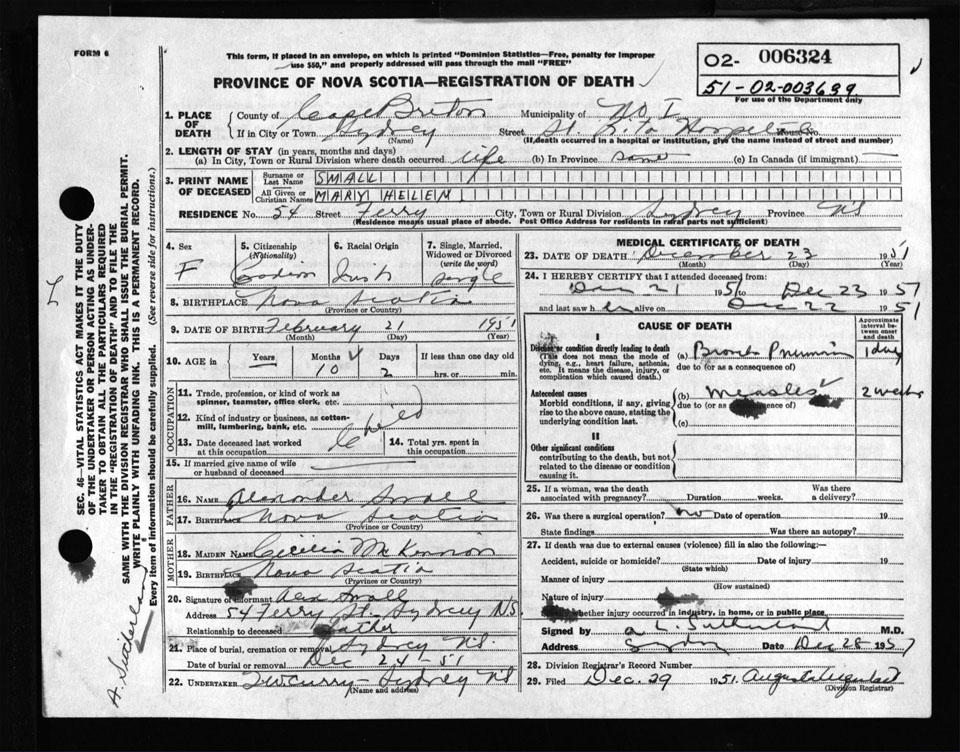 FORM 6
This form, if placed in an envelope, on which is printed "Dominion Statistics—Free, penalty for improper
use $50," and properly addressed will pass through the mail "FREE"
PROVINCE OF NOVA SCOTIA—REGISTRATION OF DEATH
02- 006324
51-02-003639
For use of the Department only
1. PLACE OF DEATH
County of Cape Breton Municipality of No I
If in City or Town Sydney Street St. Rita Hospital House No.
(Name) (If death occurred in a hospital or institution, give the name instead of street and number)
2. LENGTH OF STAY (in years, months and days)
(a) In City, Town or Rural Division where death occurred life (b) In Province same (c) In Canada (if immigrant) —
3. PRINT NAME OF DECEASED
Surname or Last Name SMALL
All Given or Christian Names MARY HELEN
RESIDENCE No. 54 Street Ferry City, Town or Rural Division Sydney Province NS
Residence means usual place of abode. Post Office Address for residents in rural parts not sufficient)
4. Sex F
5. Citizenship (Nationality) Canadian
6. Racial Origin Irish
7. Single, Married, Widowed or Divorced (write the word) single
8. BIRTHPLACE Nova Scotia
(Province or Country)
9. DATE OF BIRTH February 21 1951
(Month) (Day) (Year)
10. AGE in Years — Months 10 Days 2 If less than one day old
hrs. or min.
OCCUPATION
11. Trade, profession, or kind of work as spinner, teamster, office clerk, etc.
12. Kind of industry or business, as cotton-mill, lumbering, bank, etc.
Child
13. Date deceased last worked at this occupation
14. Total yrs. spent in this occupation
15. If married give name of wife or husband of deceased
FATHER
16. NAME Alexander Small
17. BIRTHPLACE Nova Scotia
(Province or Country)
MOTHER
18. MAIDEN NAME Cecilia McKinnon
19. BIRTHPLACE Nova Scotia
(Province or Country)
20. Signature of informant Alex Small
Address 54 Ferry St. Sydney N.S.
Relationship to deceased Father
21. Place of burial, cremation or removal Sydney NS.
Date of burial or removal Dec 24-51
22. UNDERTAKER T W Curry - Sydney NS
(Name and address)
MEDICAL CERTIFICATE OF DEATH
23. DATE OF DEATH December 23 1951
(Month) (Day) (Year)
24. I HEREBY CERTIFY that I attended deceased from:
Dec 21 1951 to Dec 23 1951
and last saw her alive on Dec 22 1951
CAUSE OF DEATH
Approximate interval between onset and death
I
Disease or condition directly leading to death
(This does not mean the mode of dying, e.g., heart failure, asthenia, etc. It means the disease, injury, or complication which caused death.)
(a) Broncho Pneumonia 1 day
due to (or as a consequence of)
Antecedent causes
Morbid conditions, if any, giving rise to the above cause, stating the underlying condition last.
(b) Measles 2 weeks
due to (or as a consequence of)
(c)
II
Other significant conditions
contributing to the death, but not related to the disease or condition causing it.
25. If a woman, was the death associated with pregnancy? Duration weeks. Was there a delivery?
26. Was there a surgical operation? no Date of operation 19
State findings Was there an autopsy?
27. If death was due to external causes (violence) fill in also the following:—
Accident, suicide or homicide? Date of injury 19
(State which)
Manner of injury
(How sustained)
Nature of injury
whether injury occurred in industry, in home, or in public place
Signed by A. L. Sutherland M.D.
Address Sydney Date Dec 28 1951
28. Division Registrar's Record Number
29. Filed Dec. 29 1951
(Division Registrar)
SEC. 46—VITAL STATISTICS ACT MAKES IT THE DUTY
OF THE UNDERTAKER OR PERSON ACTING AS UNDER-
TAKER TO OBTAIN ALL THE PARTICULARS REQUIRED
IN THE "REGISTRATION OF DEATH" AND TO FILE THE
SAME WITH THE DIVISION REGISTRAR WHO SHALL ISSUE THE BURIAL PERMIT.
WRITE PLAINLY WITH UNFADING INK. THIS IS A PERMANENT RECORD.
Every item of information should be carefully supplied. (See reverse side for instructions.)
A. Sutherland